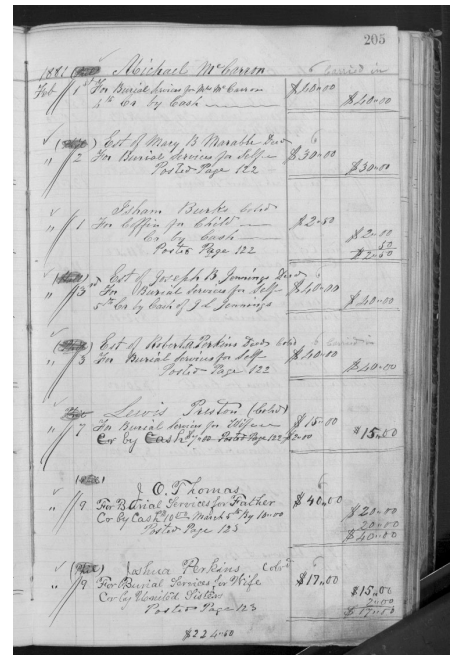 205
1881 Michael McCarron
Feb 1st For Burial Services for Mr McCarron $40.00
4th Cr by Cash $40.00
Est of Mary B Marable Decd
" 2 For Burial Services for Self $30.00
Posted Page 122 $30.00
Isham Burks Cold
" 1 For Coffin for Child $2.50
Cr by Cash $2.00
Posted Page 122 50
$2.50
Est of Joseph B Jennings Decd
" 3rd For Burial Services for Self $40.00
5th Cr by Cash of J L Jennings $40.00
Est of Robert Perkins Decd Cold
" 3 For Burial Services for Self $40.00
Posted Page 122 $40.00
Lewis Preston (Cold)
" 7 For Burial Services for Wife $15.00
Cr by Cash Posted Page 122 $15.00
J O. Thomas
" 9 For Burial Services for Father $40.00
Cr by Cash 10th March 5th By 10.00 $20.00
Posted Page 123 20.00
$40.00
Joshua Perkins Cold
" 9 For Burial Services for Wife $17.00
Cr by United Sisters $15.00
Posted Page 123 2.00
$17.00
$224.50